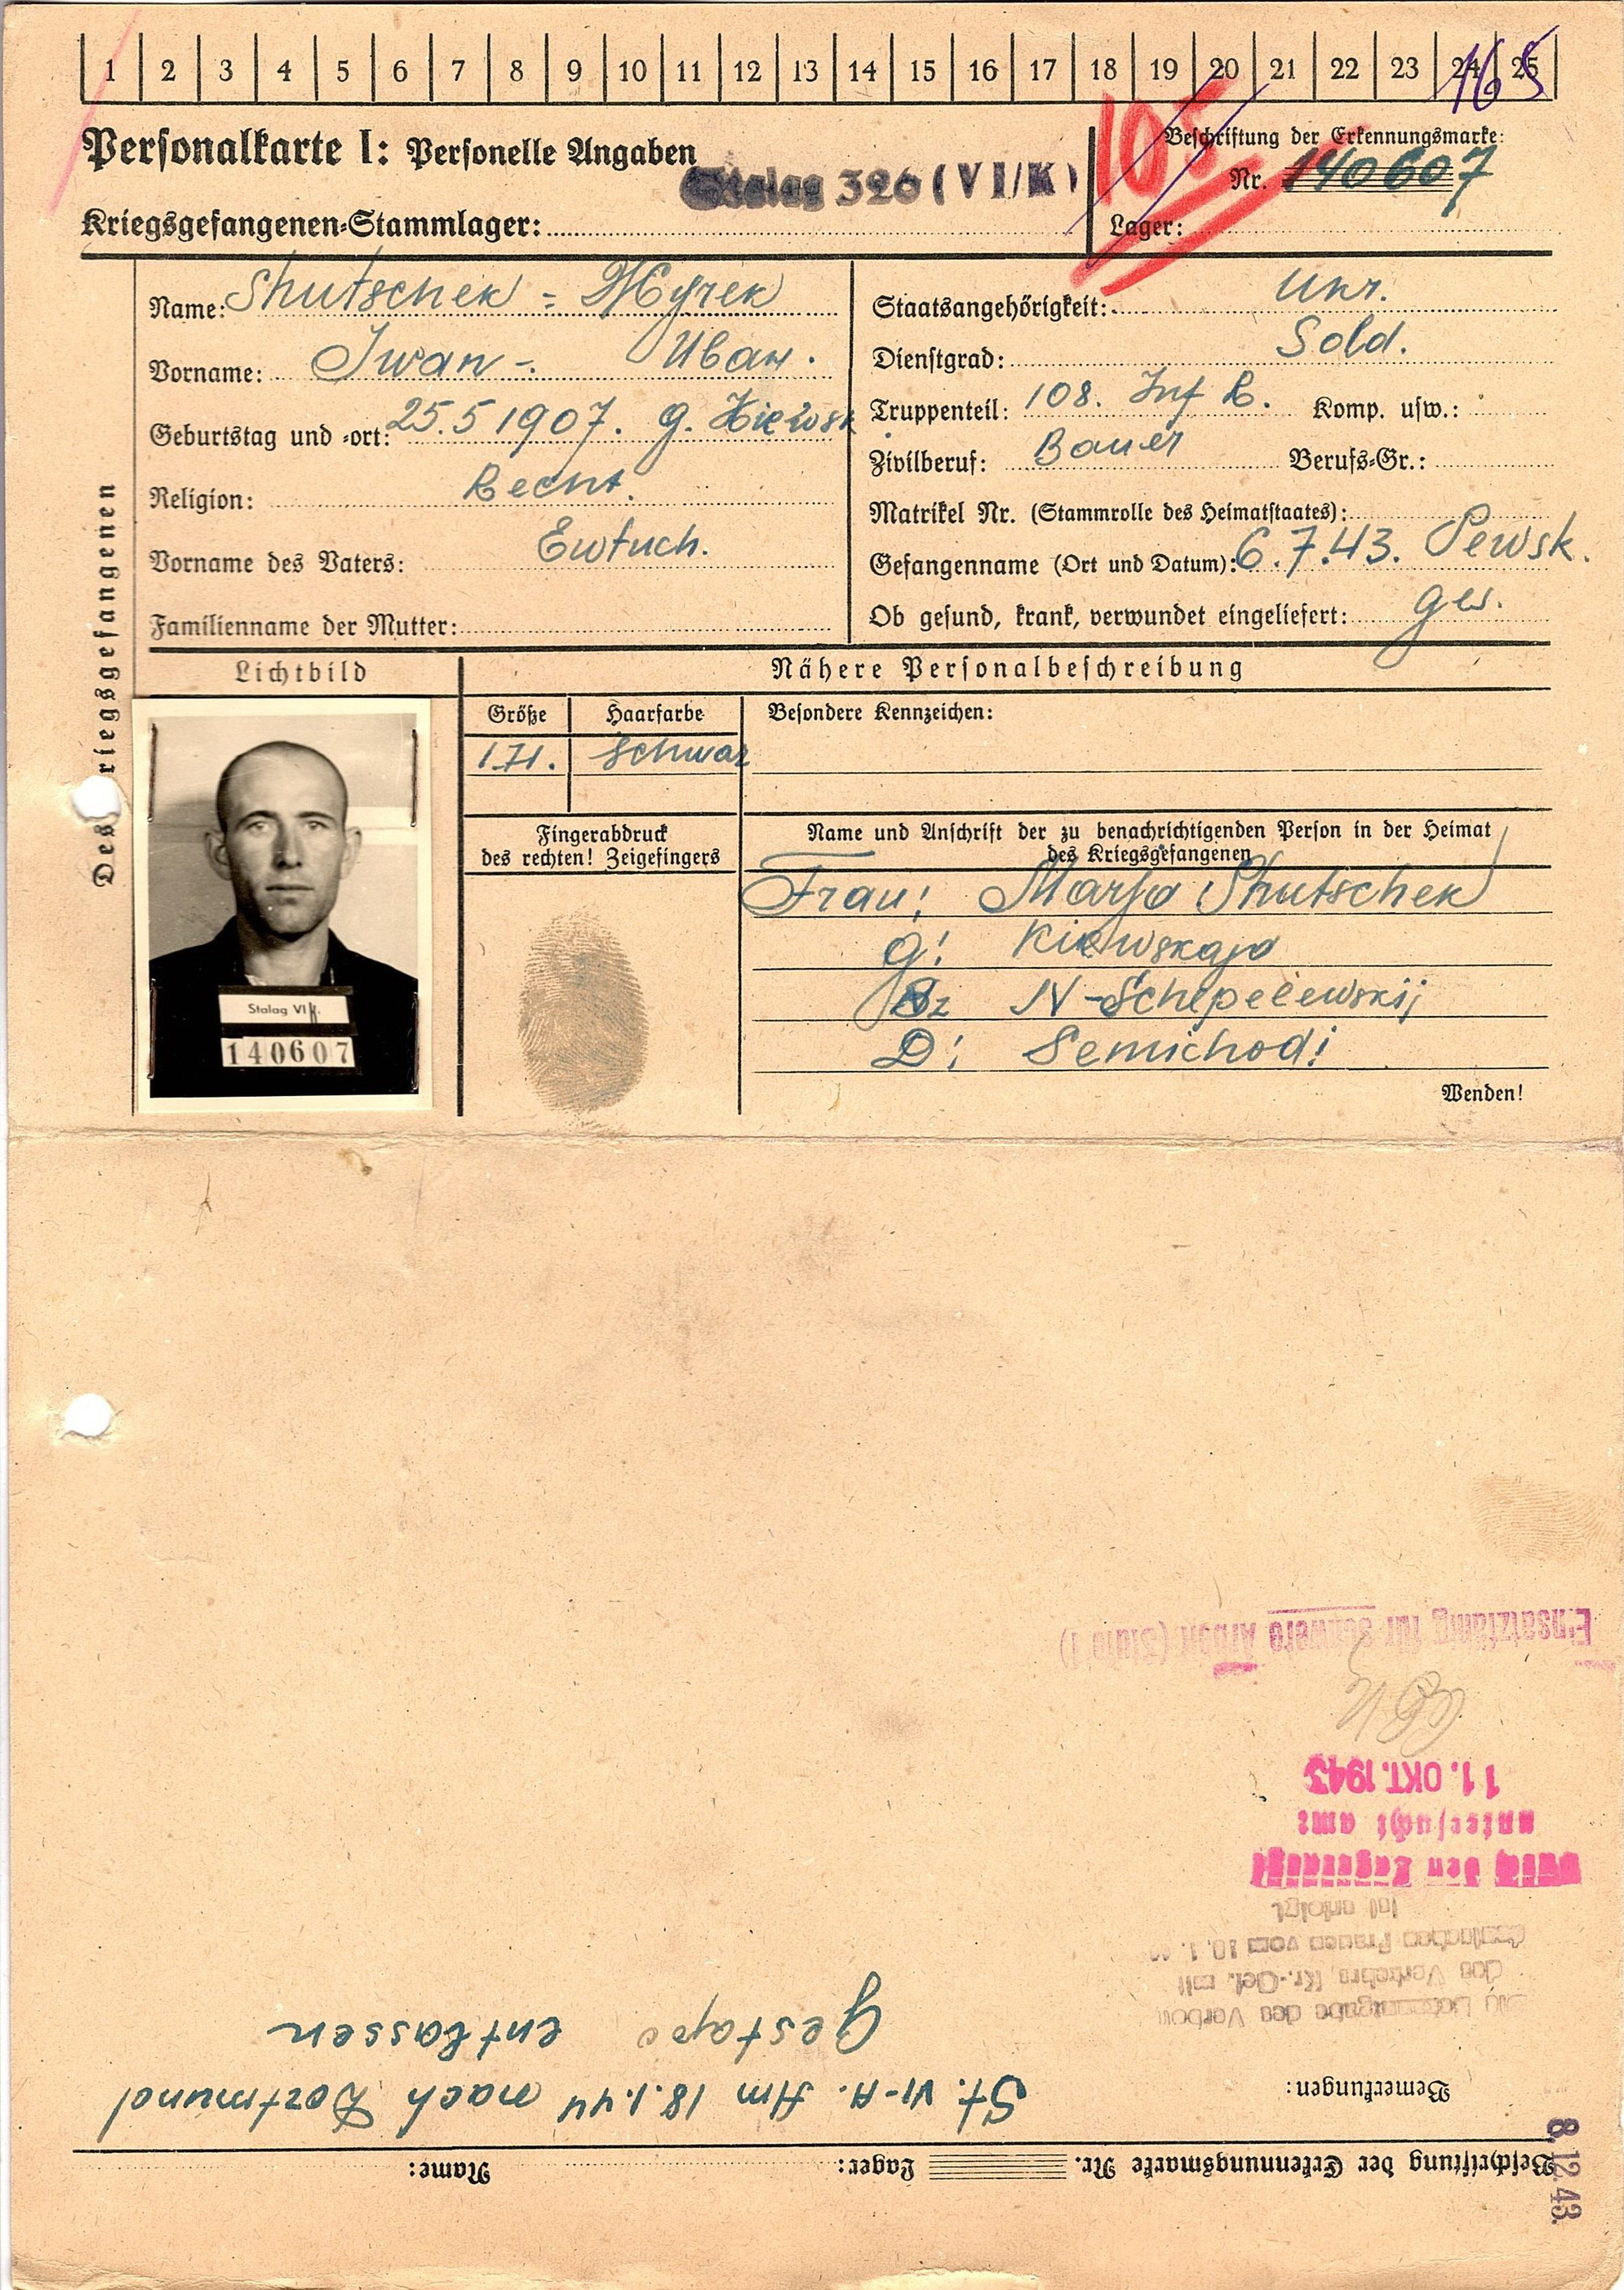 1 2 3 4 5 6 7 8 9 10 11 12 13 14 15 16 17 18 19 20 21 22 23 24 25
165
Personalkarte I: Personelle Angaben
Stalag 326 (VI/K)
105
Beschriftung der Erkennungsmarke:
Nr. 140607
Kriegsgefangenen-Stammlager:
Lager:
Des Kriegsgefangenen
Name: Shutschek =
Vorname: Iwan -. Иван.
Geburtstag und -ort: 25.5 1907. G. Kiewsk
Religion: Recht.
Vorname des Vaters: Ewtuch.
Familienname der Mutter:
Staatsangehörigkeit: Ukr.
Dienstgrad: Sold.
Truppenteil: 108. Inf R. Komp. usw.:
Zivilberuf: Bauer Berufs-Gr.:
Matrikel Nr. (Stammrolle des Heimatstaates):
Gefangenname (Ort und Datum): 6.7.43. Sewsk.
Ob gesund, krank, verwundet eingeliefert: ges.
Lichtbild
Nähere Personalbeschreibung
Größe Haarfarbe Besondere Kennzeichen:
1.71. schwarz
Fingerabdruck
des rechten! Zeigefingers
Name und Anschrift der zu benachrichtigenden Person in der Heimat
des Kriegsgefangenen
Frau: Marja Shutschek
G: Kiewskaja
N-Schepelewskij
D: Semichodi
Wenden!
Stalag VI K.
140607
Beschriftung der Erkennungsmarke Nr. Lager: Name:
8.12.43.
Bemerkungen:
St. VI-A. Am 18.1.44 nach Dortmund
Gestapo entlassen
des Verkehrs. Kr.-Gef. mit
deutschen Frauen vom 10. 1.
ist erfolgt
Durch den Lagerarzt
untersucht am:
11. OKT. 1943
Einsatzfähig für schwere Arbeit (Stufe I)